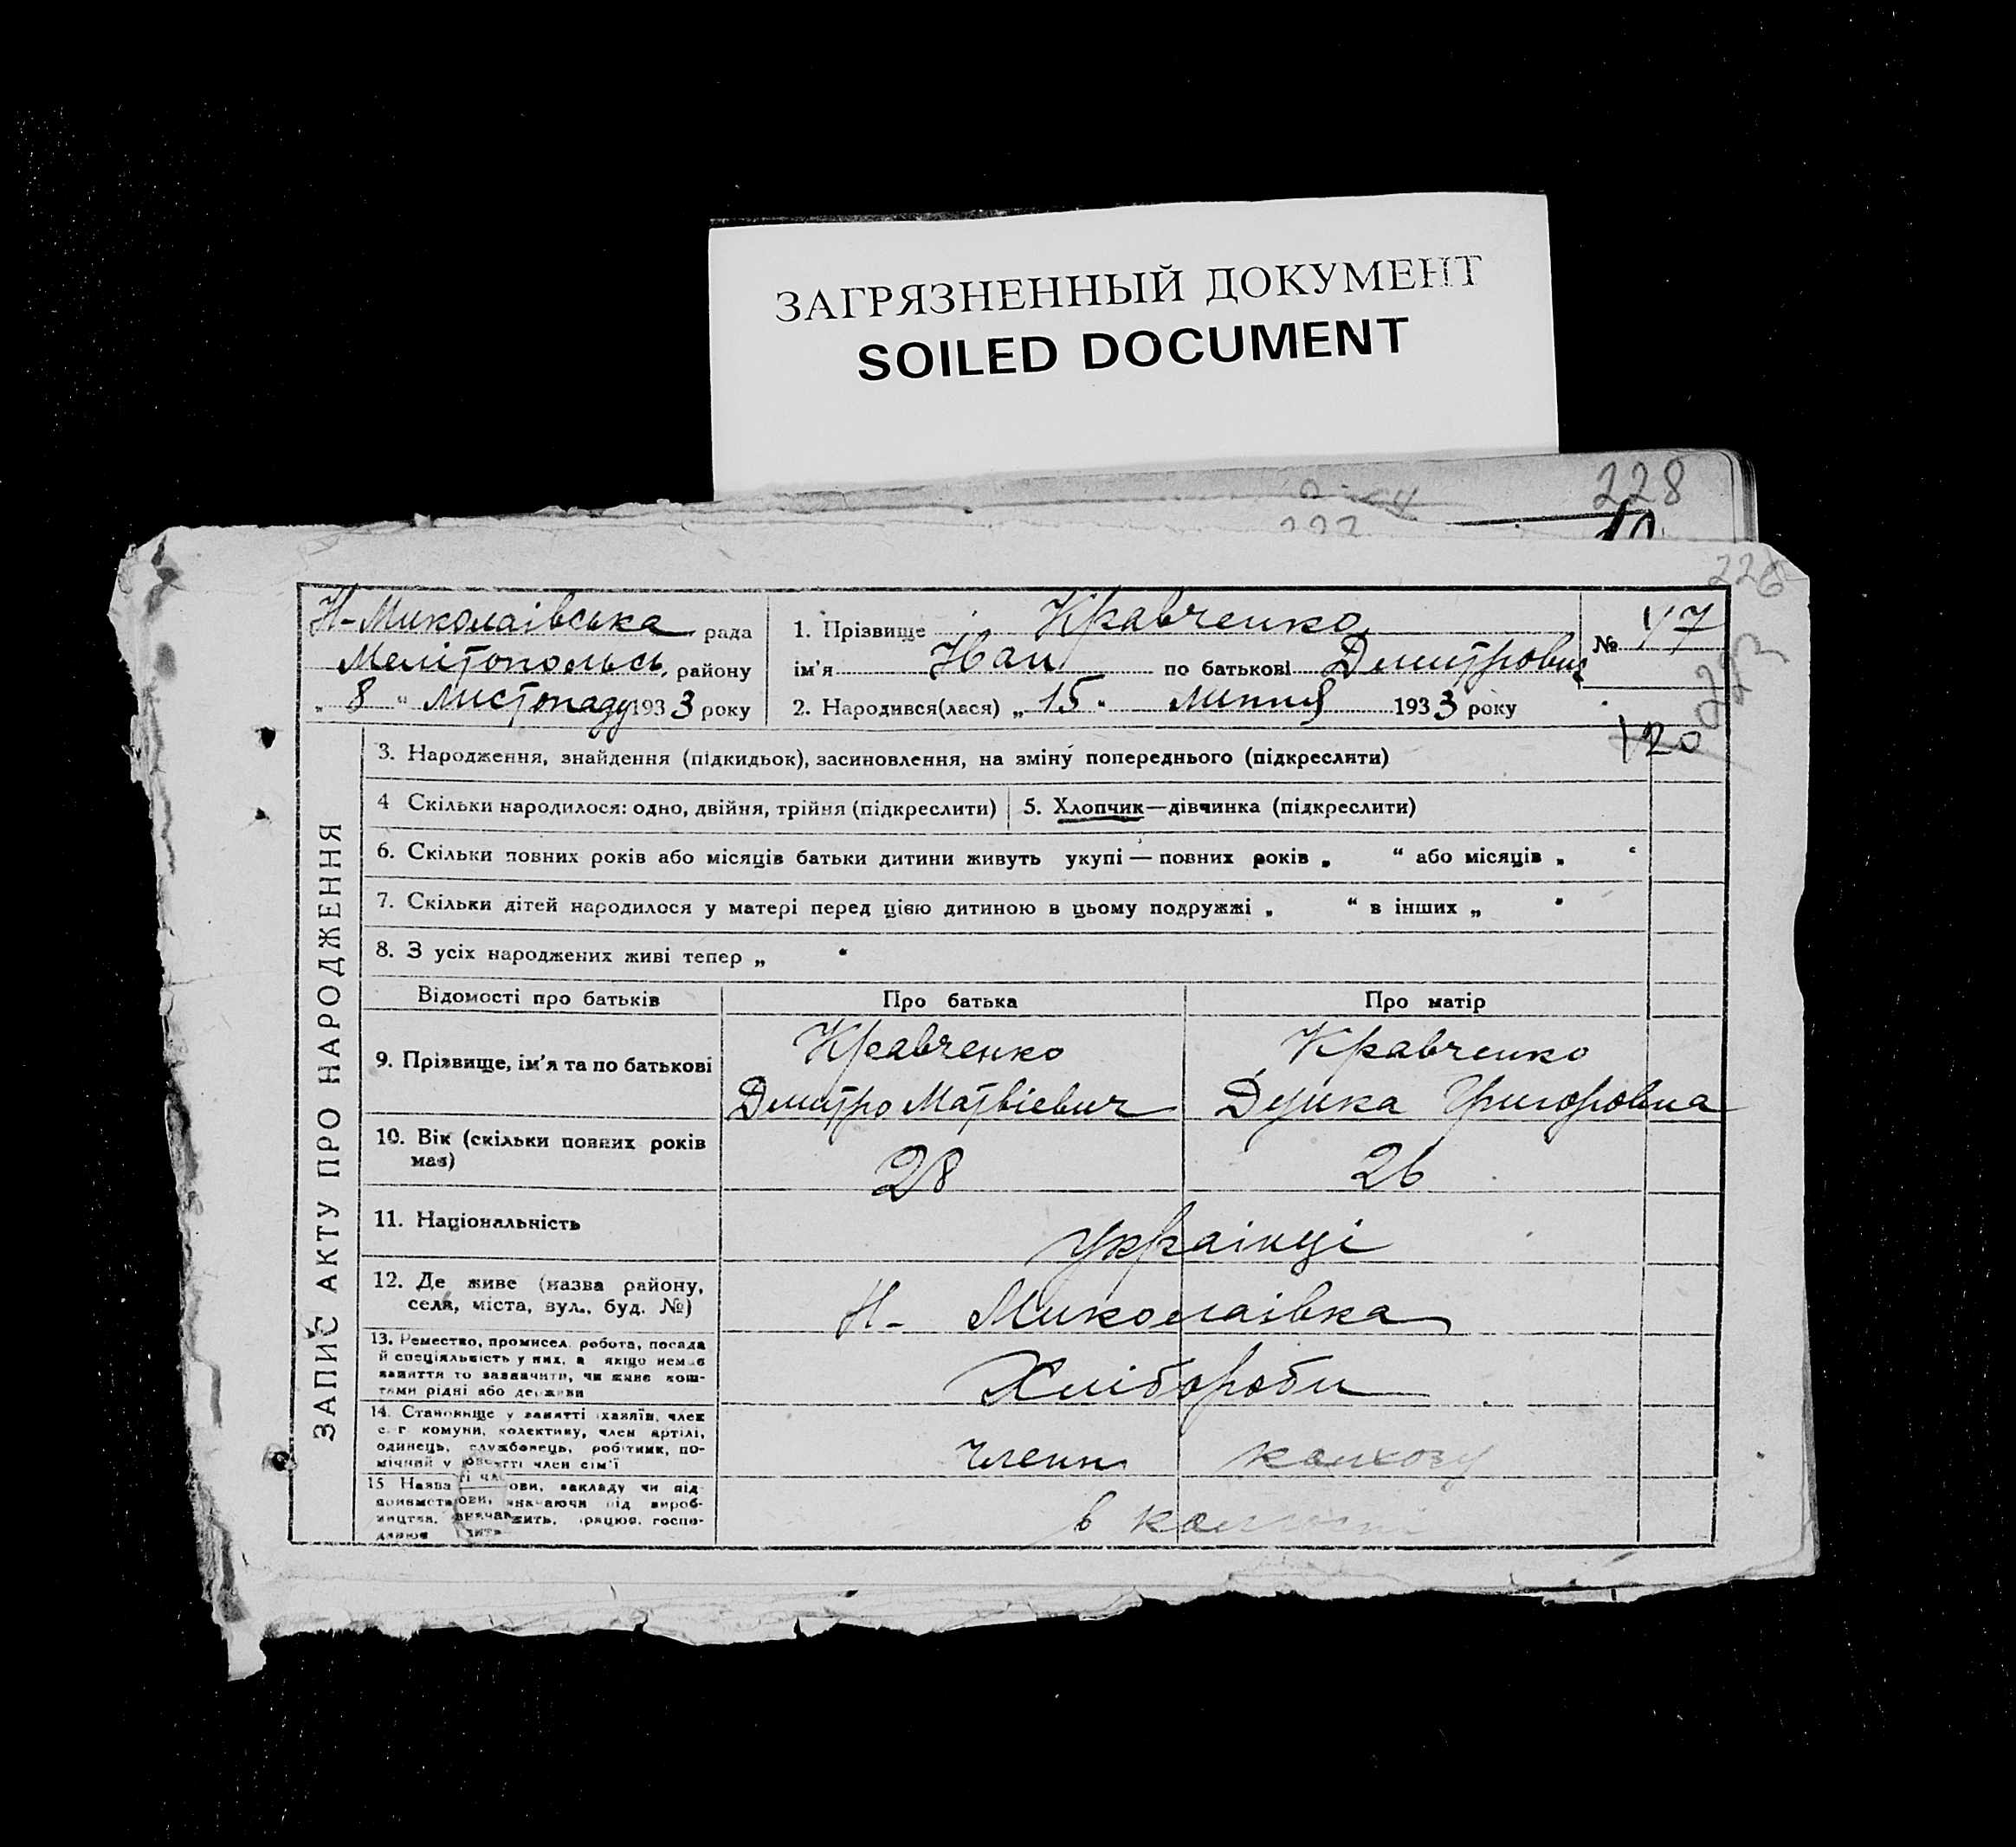 ЗАГРЯЗНЕННЫЙ ДОКУМЕНТ
SOILED DOCUMENT
228
226
Н-Миколаівська рада
Мелітопольсь району
„ 8 “ листопаду 1933 року
1. Прізвище Кравченко
ім’я Иван по батькові Дмитрович
2. Народився(лася) „ 15 “ липня 1933 року
№ 47
120
ЗАПИС АКТУ ПРО НАРОДЖЕННЯ
3. Народження, знайдення (підкидьок), засиновлення, на зміну попереднього (підкреслити)
4 Скільки народилося: одно, двійня, трійня (підкреслити)
5. Хлопчик—дівчинка (підкреслити)
6. Скільки повних років або місяців батьки дитини живуть укупі — повних років „ “ або місяців „ “
7. Скільки дітей народилося у матері перед цією дитиною в цьому подружжі „ “ в інших „ “
8. З усіх народжених живі тепер „ “
Відомості про батьків Про батька Про матір
9. Прізвище, ім’я та по батькові
Кравченко
Дмитро Матвіевич
Кравченко
Григоровна
10. Вік (скільки повних років має)
28 26
11. Національність
українці
12. Де живе (назва району,
села, міста, вул., буд. №)
Н- Миколаівка
13. Ремество, промисел, робота, посада
й спеціяльність у них, а якщо немає
заняття то зазначити, чи живе кош-
тами рідні або держави
Хлібороби
14. Становище у занятті хазяїн, член
с. г. комуни, колективу, член артілі,
одинець, службовець, робітник, по-
мічний у занятті член сім’ї
члени колхозу
15 Назва
в